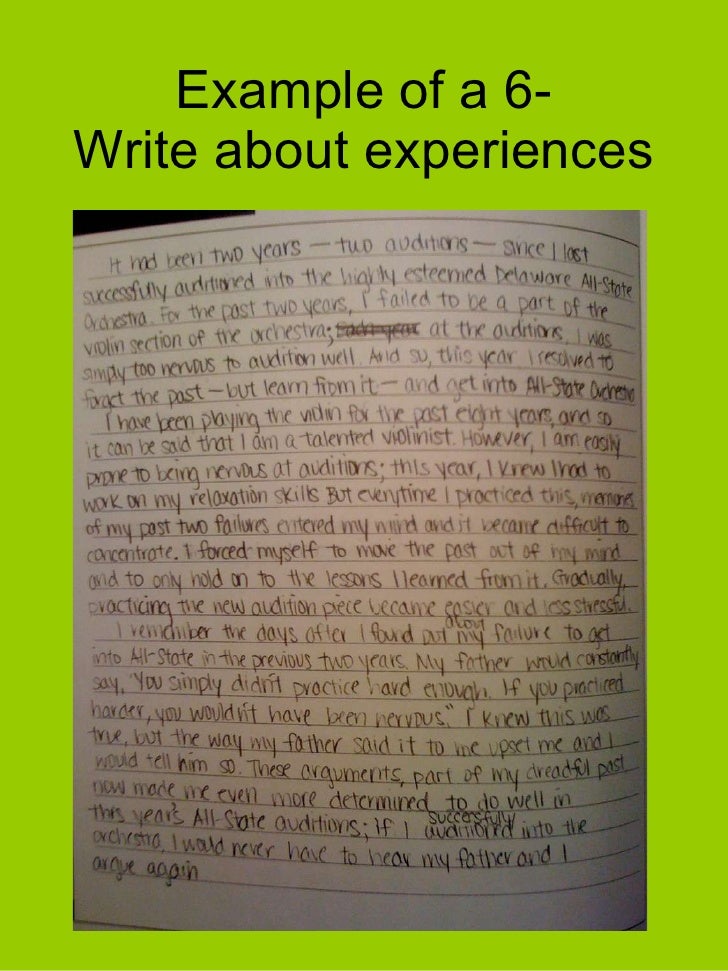 Example of a 6-
Write about experiences
It had been two years — two auditions — since I last
successfully auditioned into the highly esteemed Delaware All-State
Orchestra. For the past two years, I failed to be a part of the
violin section of the orchestra; at the auditions, I was
simply too nervous to audition well. And so, this year I resolved to
forget the past — but learn from it — and get into All-State Orchestra
I have been playing the violin for the past eight years, and so
it can be said that I am a talented violinist. However, I am easily
prone to being nervous at auditions; this year, I knew I had to
work on my relaxation skills But everytime I practiced this, memories
of my past two failures entered my mind and it became difficult to
concentrate. I forced myself to move the past out of my mind
and to only hold on to the lessons I learned from it. Gradually,
practicing the new audition piece became easier and less stressful.
I remember the days after I found out about my failure to get
into All-State in the previous two years. My father would constantly
say, "You simply didn't practice hard enough. If you practiced
harder, you wouldn't have been nervous." I knew this was
true, but the way my father said it to me upset me and I
would tell him so. These arguments, part of my dreadful past
now made me even more determined to do well in
this year's All-State auditions; if I successfully auditioned into the
orchestra, I would never have to hear my father and I
argue again